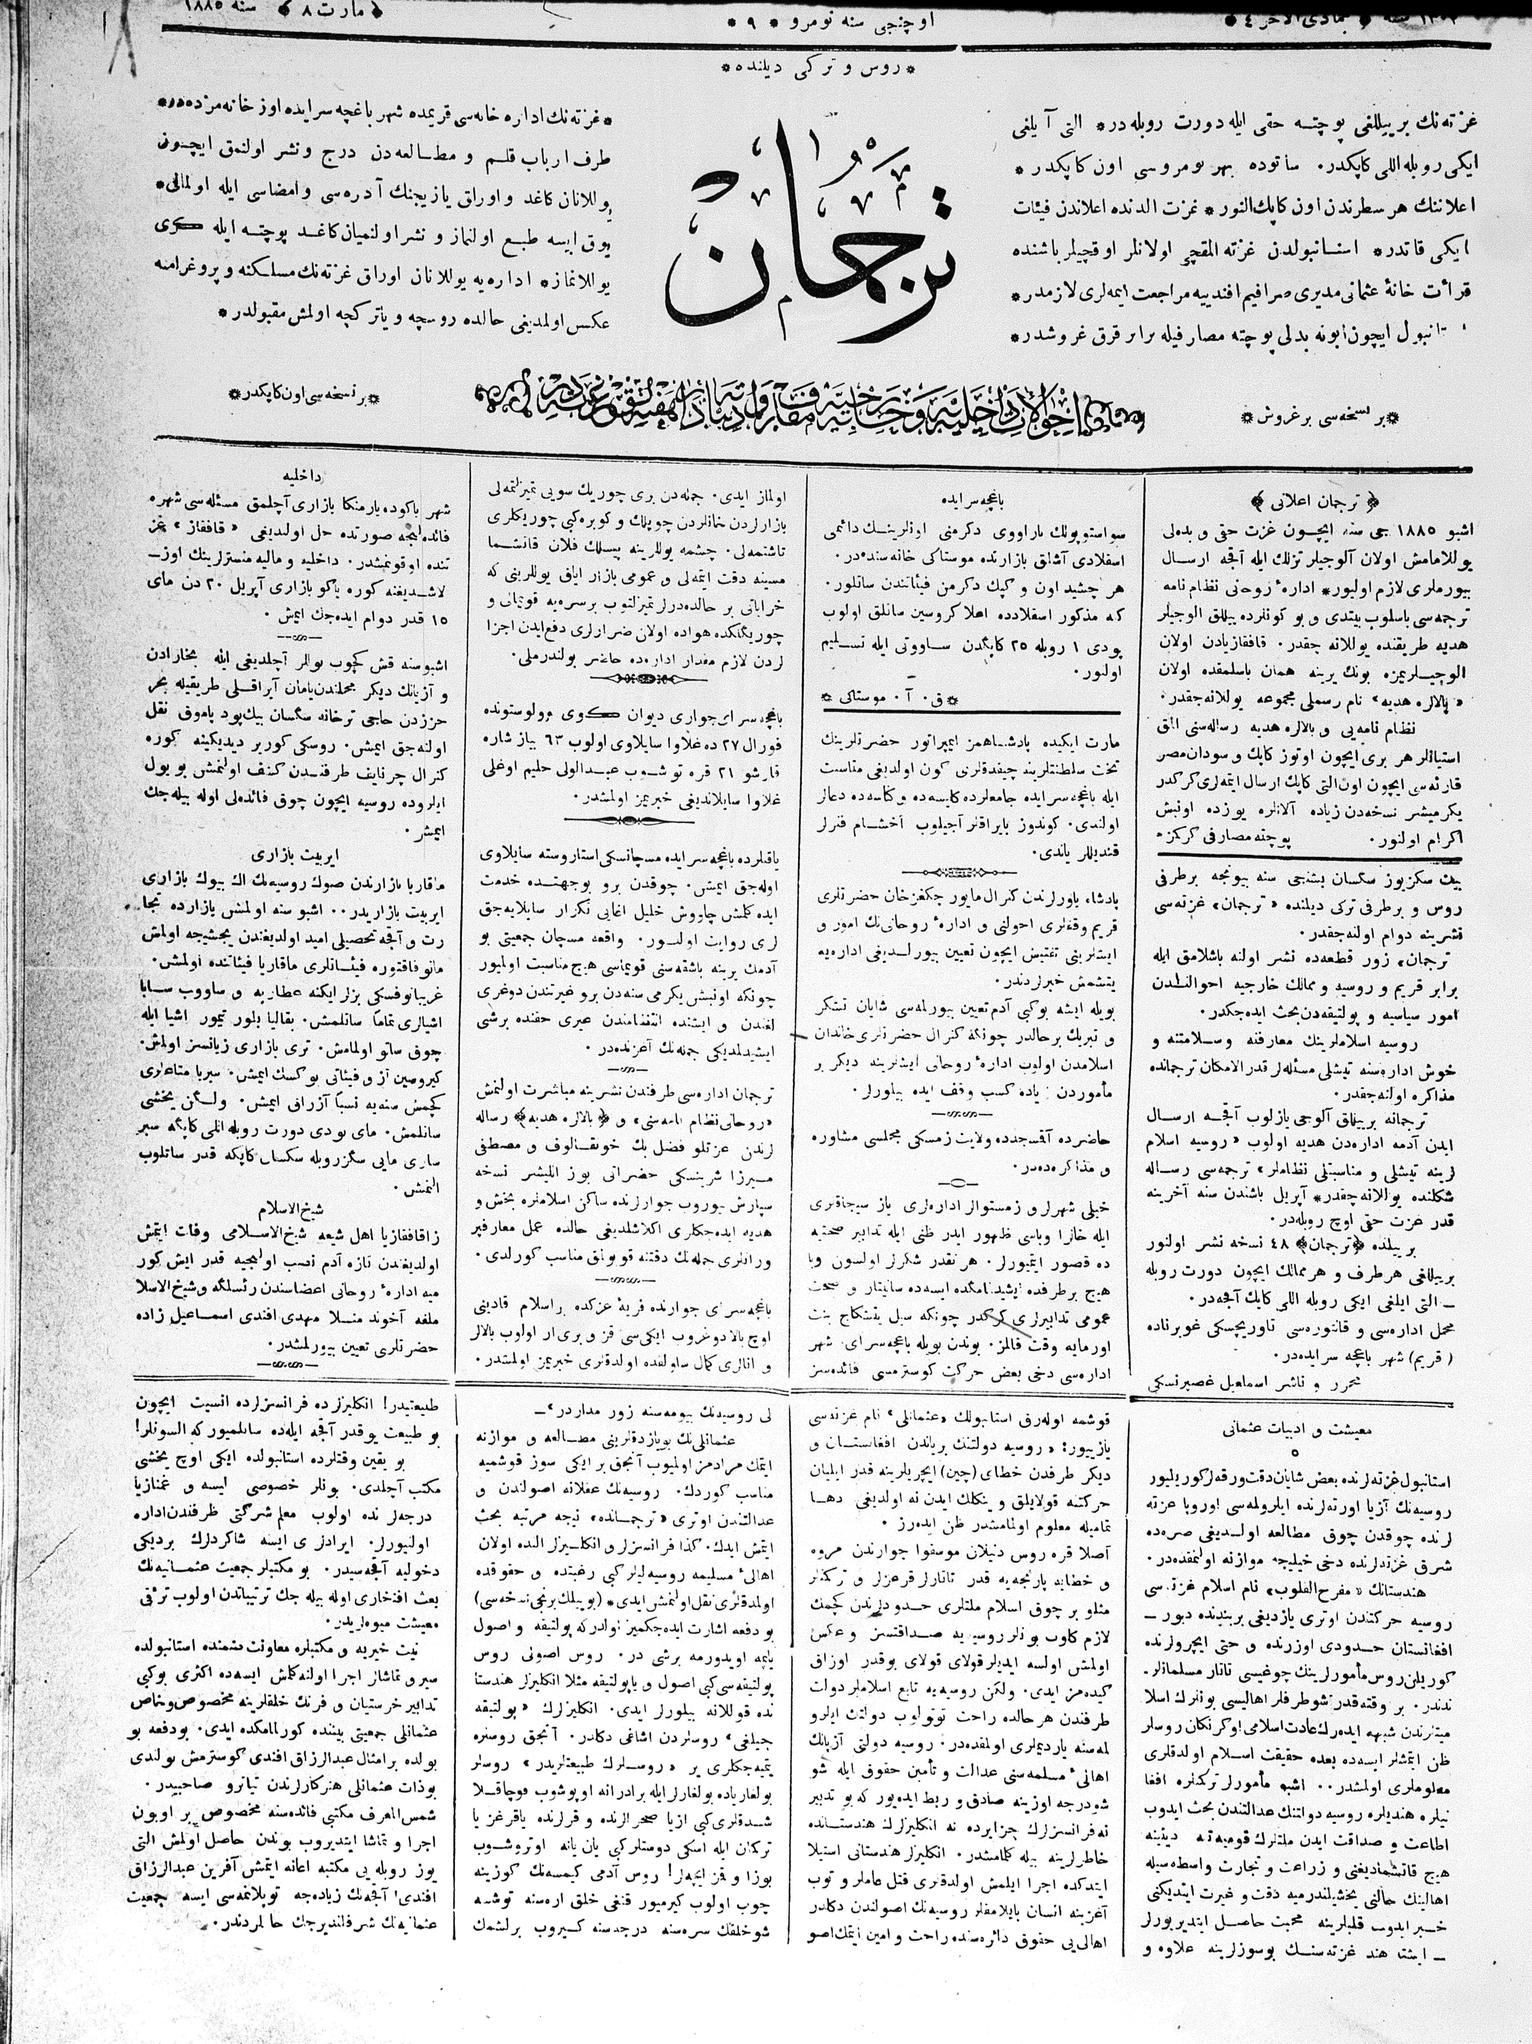 سنه ١٣٠٢ جمادى الآخر ٤
اوچنجی سنه نومرو * ٩ *
﴿ مارت ٨ ﴾ سنه ١٨٨٥
* روس و تركی دیلنده *
غزته‌نك بر ییللغی پوچته حقی ایله دورت روبله‌در* التی آیلغی
ایكی روبله اللی كاپكدر. صاتوده بهر نومروسی اون كاپكدر *
اعلاننك هر سطرندن اون كاپك النور* غزت الدنده اعلاندن فیئات
ایكی قاتدر* استانبولدن غزته المقچی اولانلر اوقچیلر باشنده
قرأت خانهٔ عثمانی مدیری صرافیم افندییه مراجعت ایمه‌لری لازمدر*
استانبول ایچون ابونه بدلی پوچته مصارفیله برابر قرق غروشدر*
* بر نسخه‌سی بر غروش *
ترجمان
* غزته‌نك اداره خانه‌سی قریمده شهر باغچه سرایده اوز خانه‌مزده‌در*
طرف ارباب قلم و مطالعه‌دن درج و نشر اولنمق ایچون
یوللانان كاغد و اوراق یازیجنك آدره‌سی و امضاسی ایله اولمالی*
یوق ایسه طبع اولنماز و نشر اولنمیان كاغد پوچته ایله كری
یوللانماز* اداره‌یه یوللانان اوراق غزته‌نك مسلكنه و پروغرامنه
عكس اولمدیغی حالده روسچه و یا تركچه اولمش مقبولدر *
* بر نسخه‌سی اون كاپكدر *
﴿ ترجمان اعلانی ﴾
اشبو ١٨٨٥ جی سنه ایچون غزت حقی و بده‌لی
یوللامامش اولان آلوجیلر تزلك ایله آقچه ارسال
بیورملری لازم اولیور* ادارهٔ روحانی نظام نامه
ترجمه‌سی باسلوب بیتدی و بو كونلرده ییللق الوجیلر
هدیه طریقنده یوللانه جقدر. قافقازیادن اولان
الوجیلریمزه بونك یرینه همان باسلمقده اولان
«بالالره هدیه» نام رسملی مجموعه یوللانه‌جقدر.
نظام نامه‌یی و بالالره هدیه رساله‌سنی الق
استیانلر هر بری ایچون اوتوز كاپك و سودان مصر
قارته‌سی ایچون اون التی كاپك ارسال ایتمه‌لری كركدر
یكرمیشر نسخه‌دن زیاده آلانلره یوزده اونبش
اكرام اولنور. پوچته مصارفی كركمز*
بیك سكز یوز سكسان بشنجی سنه بیونجه بر طرفی
روس و بر طرفی تركی دیلنده «ترجمان» غزته‌سی
نشرینه دوام اولنه‌جقدر.
ترجمان، زور قطعه‌ده نشر اولنه باشلامق ایله
برابر قریم و روسیه و ممالك خارجیه احوالندن
امور سیاسیه و پولتیقه‌دن بحث ایده‌جكدر.
روسیه اسلاملرینك معارفنه وسلامتنه و
خوش اداره‌سنه تیشلی مسئله‌لر قدر الامكان ترجمانده
مذاكره اولنه‌جقدر.
ترجمانه بر ییللق آلوجی یازلوب آقچه ارسال
ایدن آدمه اداره‌دن هدیه اولوب «روسیه اسلام
لرینه تیشلی و مناسبتلی نظاملر» ترجمه‌سی رساله
شكلنده یوللانه‌چقدر* آپریل باشندن سنه آخرینه
قدر غزت حقی اوچ روبله‌در.
بر ییلده ﴿ترجمان﴾ ٤٨ نسخه نشر اولنور
بر ییللغی هر طرف و هر ممالك ایچون دورت روبله
ـ التی ایلغی ایكی روبله اللی كاپك آقچه‌در.
محل اداره‌سی و قانتوره‌سی تاوریچسكی غوبرناده
(قریم) شهر باغچه سرایده‌در.
محرر و ناشر اسماعیل غصپرنسكی
باغچه سرایده
سواستوپولك باراووی دكرمنی اونلرینك دائمی
اسقلادی آشاق بازارده موستاكی خانه‌سنده‌در.
هر چشید اون و كپك دكرمن فیئاتندن ساتلور.
كه مذكور اسقلادده اعلا كروسین ساتلق اولوب
پودی ١ روبله ٢٥ كاپكدن ساووتی ایله تسلیم
اولنور.
* ق. آ. موستاكی *
مارت ایكیده پادشاهمز ایمپراتور حضرتلرینك
تخت سلطنتلرینه چیقدقلری كون اولدیغی مناسبت
ایله باغچه سرایده جامعلرده كلیسه‌ده و كناسه‌ده دعالر
اولندی. كوندوز بایراقلر آچیلوب اخشام فنرلر
قندیللر یاندی.
پادشاه یاورلرندن كنرال مایور چنگزخان حضرتلری
قریم وقفلری احوالنی و ادارهٔ روحانی‌نك امور و
ایشلرینی تفتیش ایچون تعیین بیورلدیغی اداره‌یه
یتشمش خبرلردندر.
بویله ایشه بوكبی آدم تعیین بیورلمه‌سی شایان تشكر
و تبریك بر حالدر چونكه كنرال حضرتلری خاندان
اسلامدن اولوب ادارهٔ روحانی ایشلرینه دیكر بر
مأموردن زیاده كسب وقف ایده بیلورلر.
حاضرده آقمسجدده ولایت زمسكی مجلسی مشاوره
و مذاكره‌ده‌در.
خیلی شهرلر و زمستوالر اداره‌لری یاز سیجاقلری
ایله خالرا وباسی ظهور ایدر ظنی ایله تدابیر صحتیه
ده قصور ایتمیورلر. هر نقدر شكرلر اولسون وبا
هیچ بر طرفده ایشیدلمامكده ایسه‌ده سانیتار و صحت
عمومی تدابیرلری كركدر چونكه سیل یقشكاچ بنت
اورمایه وقت قالمز. بوندن بویله باغچه سرای شهر
اداره‌سی دخی بعض حركت كوسترمسی فائده‌سز
اولماز ایدی. جمله‌دن بری چوریك سویی تمیزلتمه‌لی
بازارلردن خانلردن چوپلك و كوبره كبی چوریكلری
تاشتمه‌لی. چشمه یوللرینه پسلك فلان قاتشما
مسینه دقت ایتمه‌لی و عمومی بازار ایاق یوللرینی كه
خراباتی بر حالده‌درلر تمیزلتوب بر سره‌یه قویمالی و
چوریكلكده هواده اولان ضرارلری دفع ایدن اجزا
لردن لازم مقدار اداره‌ده حاضر بولندرملی.
باغچه سرای جواری دیوان كوی وولوستونده
فورال ٢٧ ده غلاوا سایلاوی اولوب ٦٣ بیاز شاره
قارشو ٢١ قره توشوب عبدالولی حلیم اوغلی
غلاوا سایلاندیغی خبریمز اولمشدر.
یاقلرده باغچه سرایده مسچانسكی استاروسته سایلاوی
اوله‌جق ایمش. چوقدن برو بوجهتده خدمت
ایده كلمش چاووش خلیل اغایی تكرار سایلایه‌جق
لری روایت اولنور. واقعه مسچان جمعیتی بو
آدمك یرینه باشقه‌سنی قویماسی هیچ مناسبت اولمیور
چونكه اونبش یكرمی سنه‌دن برو غیرتندن دوغری
لغندن و ایشنده انتظامندن غیری حقنده برشی
ایشیدلمدیكی جمله‌نك آغزنده‌در.
ترجمان اداره‌سی طرفندن نشرینه مباشرت اولنمش
«روحانی نظام نامه‌سنی» و ﴿بالالره هدیه﴾ رساله
لرندن عزتلو فضل بك خونقالوف و مصطفی
میرزا شرینسكی حضراتی یوز اللیشر نسخه
سپارش بیوروب جوارلرنده ساكن اسلاملره بخش و
هدیه ایده‌جكلری اكلاشلدیغی حالده عمل معارفپر
ورانلری جمله‌نك دقتنه قویولق مناسب كورلدی.
باغچه سرای جوارنده قریهٔ عزكده بر اسلام قادینی
اوچ بالا دوغروب ایكی‌سی قز و بری ار اولوب بالالر
و انالری كمال ساولقده اولدقلری خبریمز اولمشدر.
داخلیه
شهر باكوده یارمنكا بازاری آچلمق مسئله‌سی شهره
فائده‌لیجه صورتده حل اولندیغی «قافقاز» غز
تنده اوقونمشدر. داخلیه و مالیه منسترلرینك اوز
لاشدیغنه كوره باكو بازاری آپریل ٢٠ دن مای
١٥ قدر دوام ایده‌جك ایمش.
اشبو سنه قش كچوب یوللر آچلدیغی ایله بخارادن
و آزیانك دیكر محللندن یامان آیراقلی طریقیله بحر
حزردن حاجی ترخانه سكسان بیك پود پاموق نقل
اولنه‌جق ایمش. روسكی كوریر دیدیكینه كوره
كنرال چرنایف طرفندن كشف اولنمش بو یول
ایلروده روسیه ایچون چوق فائده‌لی اوله بیله‌جك
ایمش.
ایربیت بازاری
ماقاریا بازارندن صوك روسیه‌نك اك بیوك بازاری
ایربیت بازاریدر.. اشبو سنه اولمش بازارده تجا
رت و آقچه تحصیلی امید اولدیغندن یخشیجه اولمش
مانوفاقتوره فیئاتلری ماقاریا فیئاتنده اولمش.
غریبانوفسكی بزلر ایكنه عطاریه و ساووب سابا
اشیالری تماما ساتلمش. بقالیا بلور تیمور اشیا ایله
چوق ساتو اولمامش. تری بازاری زیانسز اولمش.
كیروسین آز و فیئاتی یوكسك ایمش. سبریا متاعلری
كچمش سنه‌یه نسبتا آزراق ایمش. ولكن یخشی
ساتلمش. مای پودی دورت روبله اللی كاپكه سبر
ساری مایی سكز روبله سكسان كاپكه قدر ساتلوب
النمش.
شیخ الاسلام
زاقافقازیا اهل شیعه شیخ الاسلامی وفات ایتمش
اولدیغندن تازه آدم نصب اولنجیه قدر ایش كور
میه ادارهٔ روحانی اعضاسندن رئسلكه و شیخ الاسلا
ملغه آخوند منلا مهدی افندی اسماعیل زاده
حضرتلری تعیین بیورلمشدر.
معیشت و ادبیات عثمانی
٥
استانبول غزته‌لرنده بعض شایان دقت ورقه‌لر كوریلیور
روسیه‌نك آزیا اورته‌لرنده ایلرولمه‌سی اوروپا غزته
لرنده چوقدن چوق مطالعه اولندیغی صره‌ده
شرق غزته‌لرنده دخی خیلیجه موازنه اولنمقده‌در.
هندستانك «مفرح القلوب» نام اسلام غزته‌سی
روسیه حركتندن اوتری یازدیغی بر بندنده دیور ـ
افغانستان حدودی اوزرنده و حتی ایچرولرنده
كوریلن روس مأمورلرینك چوغیسی تاتار مسلمانلر
ندندر. بر وقته قدر شو طرفلر اهالیسی بونلرك اسلا
میتلرندن شبهه ایده‌رك عادت اسلامی اوكرنكان روسلر
ظن ایتمشلر ایسه‌ده بعده حقیقت اسلام اولدقلری
معلوملری اولمشدر.. اشبو مأمورلر تركمنلره افغا
نیلره هندیلره روسیه دولتنك عدالتندن بحث ایدوب
اطاعت و صداقت ایدن ملتلرك قومیه‌تنه دینینه
هیچ قاتشمادیغنی و زراعت و تجارت واسطه‌سیله
اهالینك حالنی یخشیلندرمیه دقت و غیرت ایتدیكنی
خبر ایدوب قلبلرینه محبت حاصل ایتدیریورلر
ـ ایشته هند غزته‌سنك بو سوزلرینه علاوه و
قوشمه اوله‌رق استانبولك «عثمانلی» نام غزته‌سی
یازییور: «روسیه دولتنك بر یاندن افغانستان و
دیكر طرفدن خطای (چین) ایچریلرینه قدر ایلیان
حركتنه قولایلق و ینكللك ایدن نه اولدیغی دها
تمامیله معلوم اولمامشدر ظن ایده‌رز.
آصلا قره روس دنیلان موسقوا جوارندن مروه
و خطایه یارنجه‌یه قدر تاتارلر قرغزلر و تركمنلر
مثللو بر چوق اسلام ملتلری حدودلرندن كچمك
لازم كلوب بونلر روسیه‌یه صداقتسز و عكس
اولمش اولسه ایدیلر قولای قولای بو قدر اوزاق
كیده‌مز ایدی. ولكن روسیه‌یه تابع اسلاملر دولت
طرفندن هر حالده راحت توتولوب دولتك ایلرو
لمه‌سنه یاردیملری اولمقده‌در. روسیه دولتی آزیانك
اهالیٔ مسلمه‌سنی عدالت و تأمین حقوق ایله شو
شو درجه اوزینه صادق و ربط ایده‌یور كه بو تدبیر
نه فرانسزلرك جزایرده نه انكلیزلرك هندستانده
خاطرلرینه بیله كلمامشدر. انكلیزلر هندستانی استیلا
ایتدكده اجرا ایلمش اولدقلری قتل عاملر و توب
آغزینه انسان بایلامقلر روسیه‌نك اصولندن دكلدر
اهالی‌یی حقوق دائره‌سنده راحت و امین ایتمك اصو
لی روسیه‌نك بیومه‌سنه زور مداردر»ـ
عثمانلی‌نك بو یازدقلرینی مطالعه و موازنه
ایتمك مرادمز اولمیوب آنجق بر ایكی سوز قوشمیه
مناسب كوردك. روسیه‌نك عقلانه اصولندن و
عدالتندن اوتری «ترجمانده» نیجه مرتبه بحث
ایتمش ایدك. كذا فرانسزلر و انكلیزلر النده اولان
اهالیٔ مسلیمه روسیه‌لیلر كبی رغبتده و حقوقده
اولمدقلری نقل اولنمش ایدی* (بو ییلك برنجی نسخه‌سی)
بو دفعه اشارت ایده‌جكمیز اولدر كه پولتیقه و اصول
یاپمه اویدورمه برشی در. روس اصولی روس
پولتیقه‌سی كبی اصول و یا پولتیقه مثلا انكلیزلر هندستا
نده قوللانه بیلورلر ایدی. انكلیزلرك «پولتیقه
جیلغی» روسلردن اشاغی دكلدر. آنجق روسلره
یتیه‌جكلری یر «روسلرك طبیعتلریدر» روسلر
بولغاریاده بولغارلر ایله برادرانه اوپوشوب قوچاقلا
شدقلری كبی ازیا صحرالرنده و قرلرنده یا قرغز یا
تركمان ایله اسكی دوستلر كبی یان یانه اوتروشوب
بوزا و قمز ایچه‌لر! روس آدمی كیمسه‌نك كوزینه
چوپ اولوب كیرمیور قنغی خلق اره‌سنه توشسه
شو خلقك سره‌سنه درجه‌سنه كیروب برلشمك
طبیعتیدر! انكلیزلرده فرانسزلرده انسیت ایچون
بو طبیعت یوقدر آقچه ایله‌ده ساتلمیور كه السونلر!
بو یقین وقتلرده استانبولده ایكی اوچ یخشی
مكتب آچلدی. بونلر خصوصی لیسه و غمنازیا
درجه‌لرنده اولوب معلم شركتی طرفندن اداره
اولنیورلر. ایرادلری ایسه شاكردلرك بردیكی
دخولیه آقچه‌سیدر. بو مكتبلر جمعیت عثمانیه‌نك
بعث افتخاری اوله بیله جك ترتیباتدن اولوب ترقی
معیشت میوه‌لریدر.
نیت خیریه و مكتبلره معاونت ضمننده استانبولده
سیر و تماشالر اجرا اولنه كلمش ایسه‌ده اكثری بوكبی
تدابیر خرستیان و فرنك خلقلرینه مخصوص و خاص
عثمانلی جمعیتی بیننده كورلمامكده ایدی. بو دفعه بو
یولده بر امثال عبدالرزاق افندی كوسترمش بولندی
بو ذات عثمانلی هنركارلرندن تیاترو صاحبیدر.
شمس المعرف مكتبی فائده‌سنه مخصوص بر اویون
اجرا و تماشا ایتدیروب بوندن حاصل اولمش التی
یوز روبله‌یی مكتبه اعانه ایتمش آفرین عبدالرزاق
افندی! آقچه‌نك زیاده‌جه توپلانمه‌سی ایسه جمعیت
عثمانیه‌نك شرفلندیرجك حاللردندر.